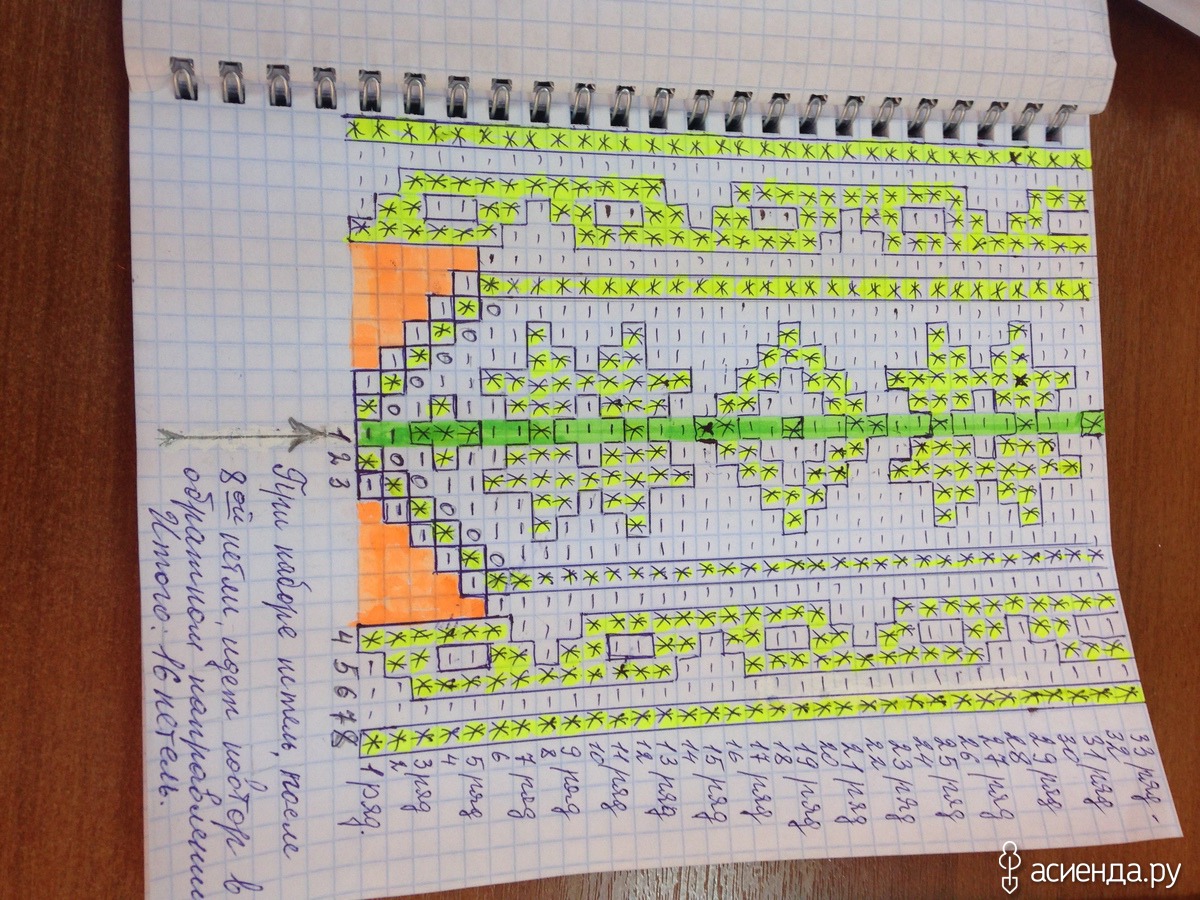 1 2 3 4 5 6 7 8
1 ряд.
2
3 ряд
4
5 ряд
6
7 ряд
8
9 ряд
10
11 ряд
12
13 ряд
14
15 ряд
16
17 ряд
18
19 ряд
20
21 ряд
22
23 ряд
24
25 ряд
26
27 ряд
28
29 ряд
30
31 ряд
32
33 ряд.
При наборе петель, после
8ой петли, идет повтор в
обратном направлении
Итого: 16 петель.
асиенда.ру